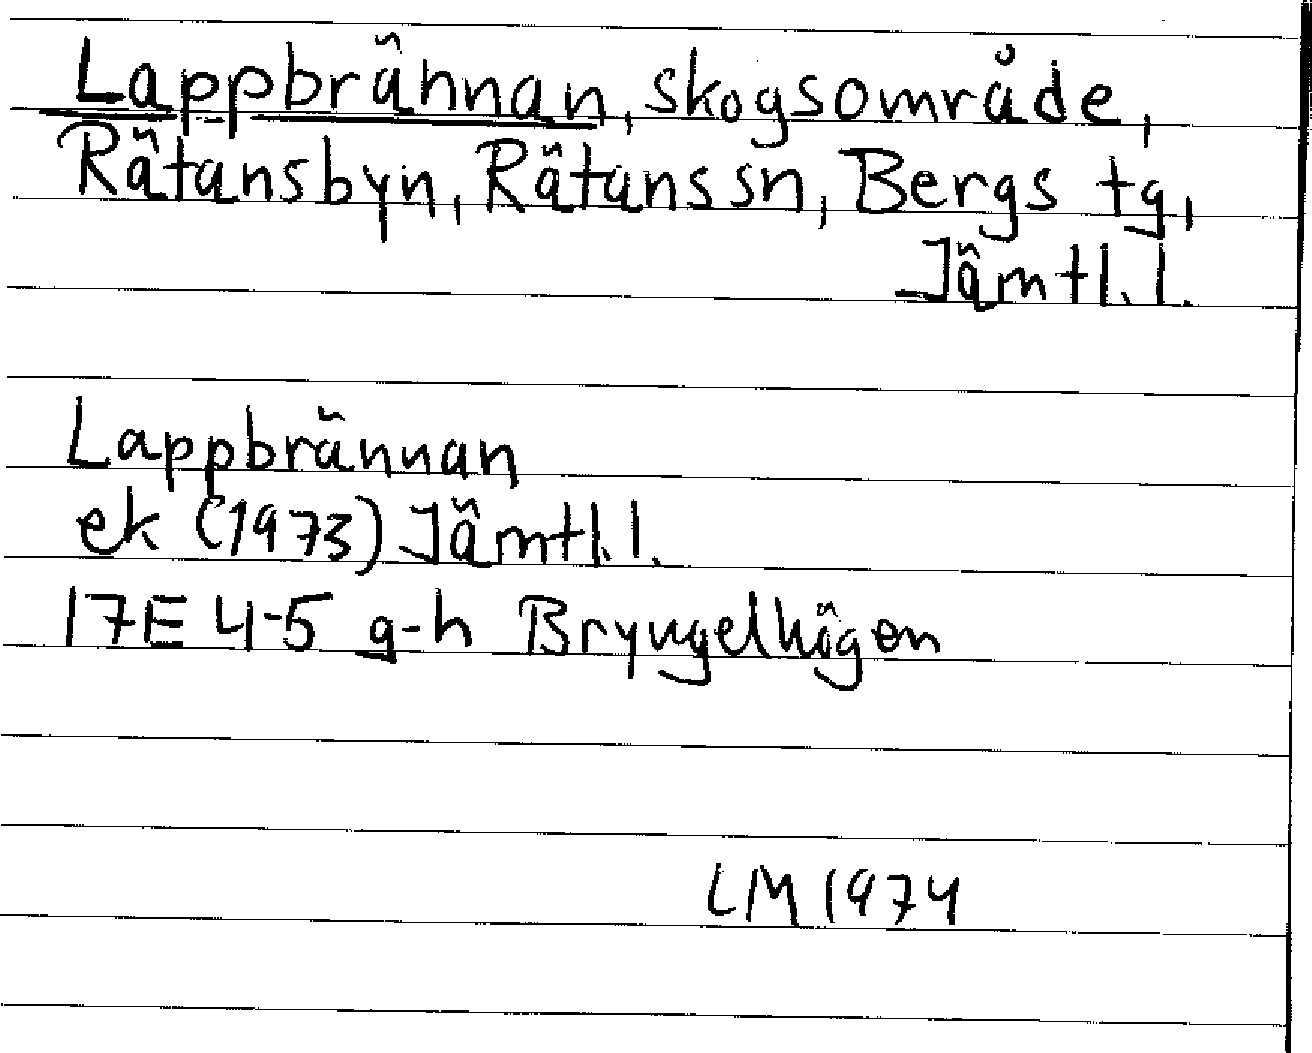 Lappbrännan, skogsområde,
Rätansbyn, Rätans sn, Bergs tg,
Jämtl. l.
Lappbrännan
ek (1973) Jämtl. l.
17E 4-5 g-h Bryngelhögen
LM 1974